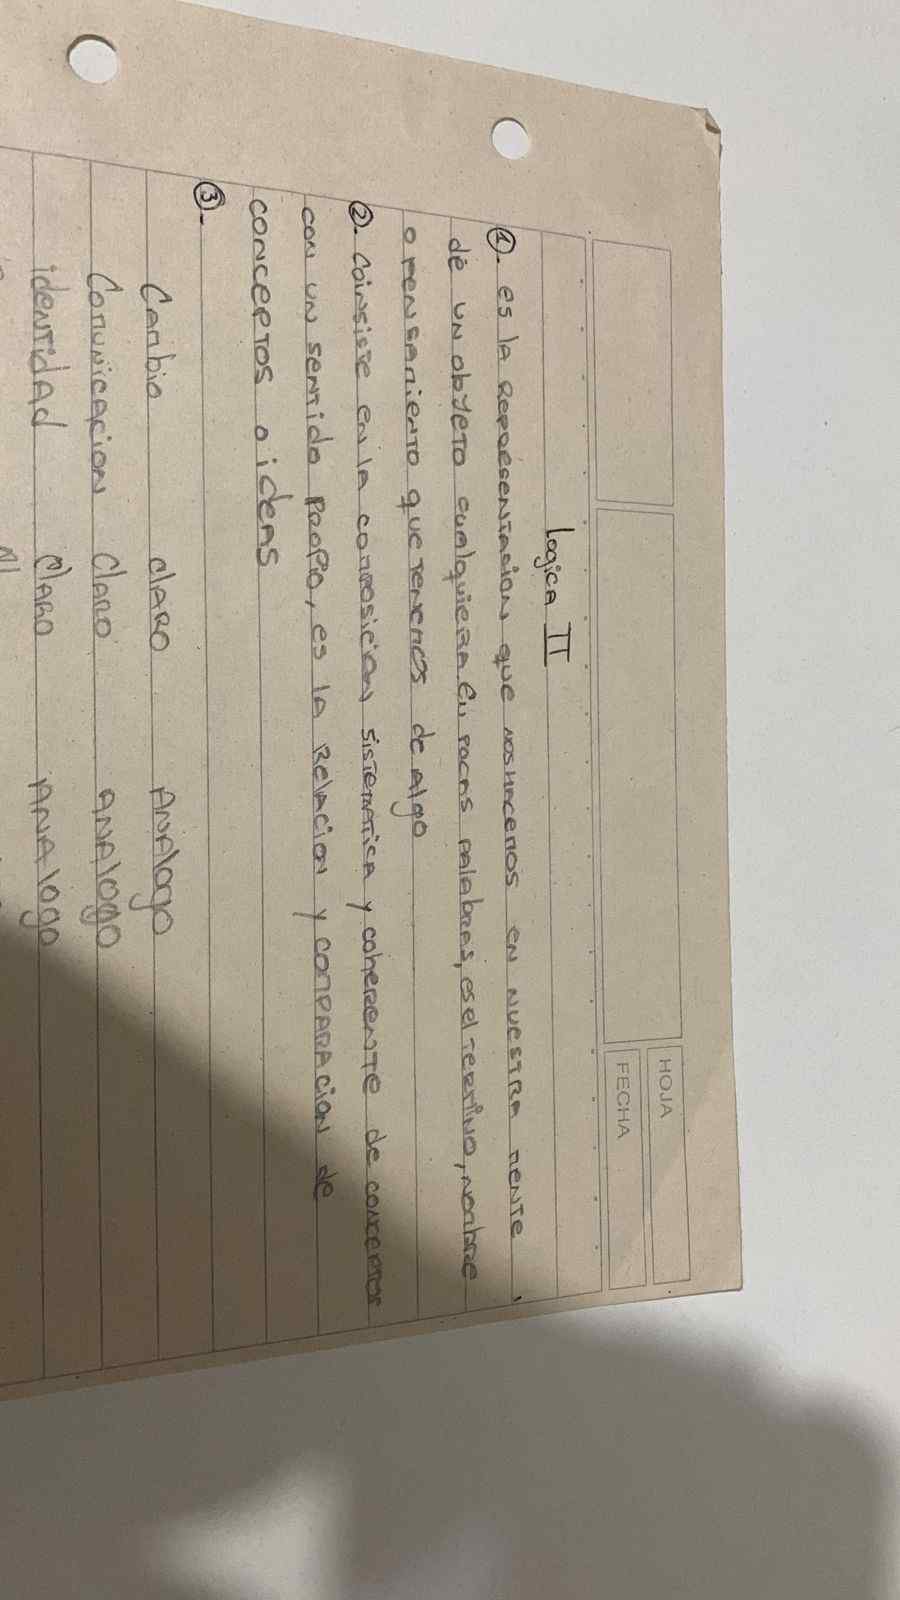 HOJA
FECHA
Logica II
①. es la Representasion que nos hacemos en nuestra mente
de un obyeto cualquiera. En pocas palabras, es el termino, nombre
o pensamiento que tenemos de algo
②. Coinsiste en la composicion sistematica y coherente de conceptos
con un sentido propio, es la Relacion y comparacion de
conceptos o ideas
③.
Cambio claro Analogo
Comunicacion claro analogo
identidad claro analogo